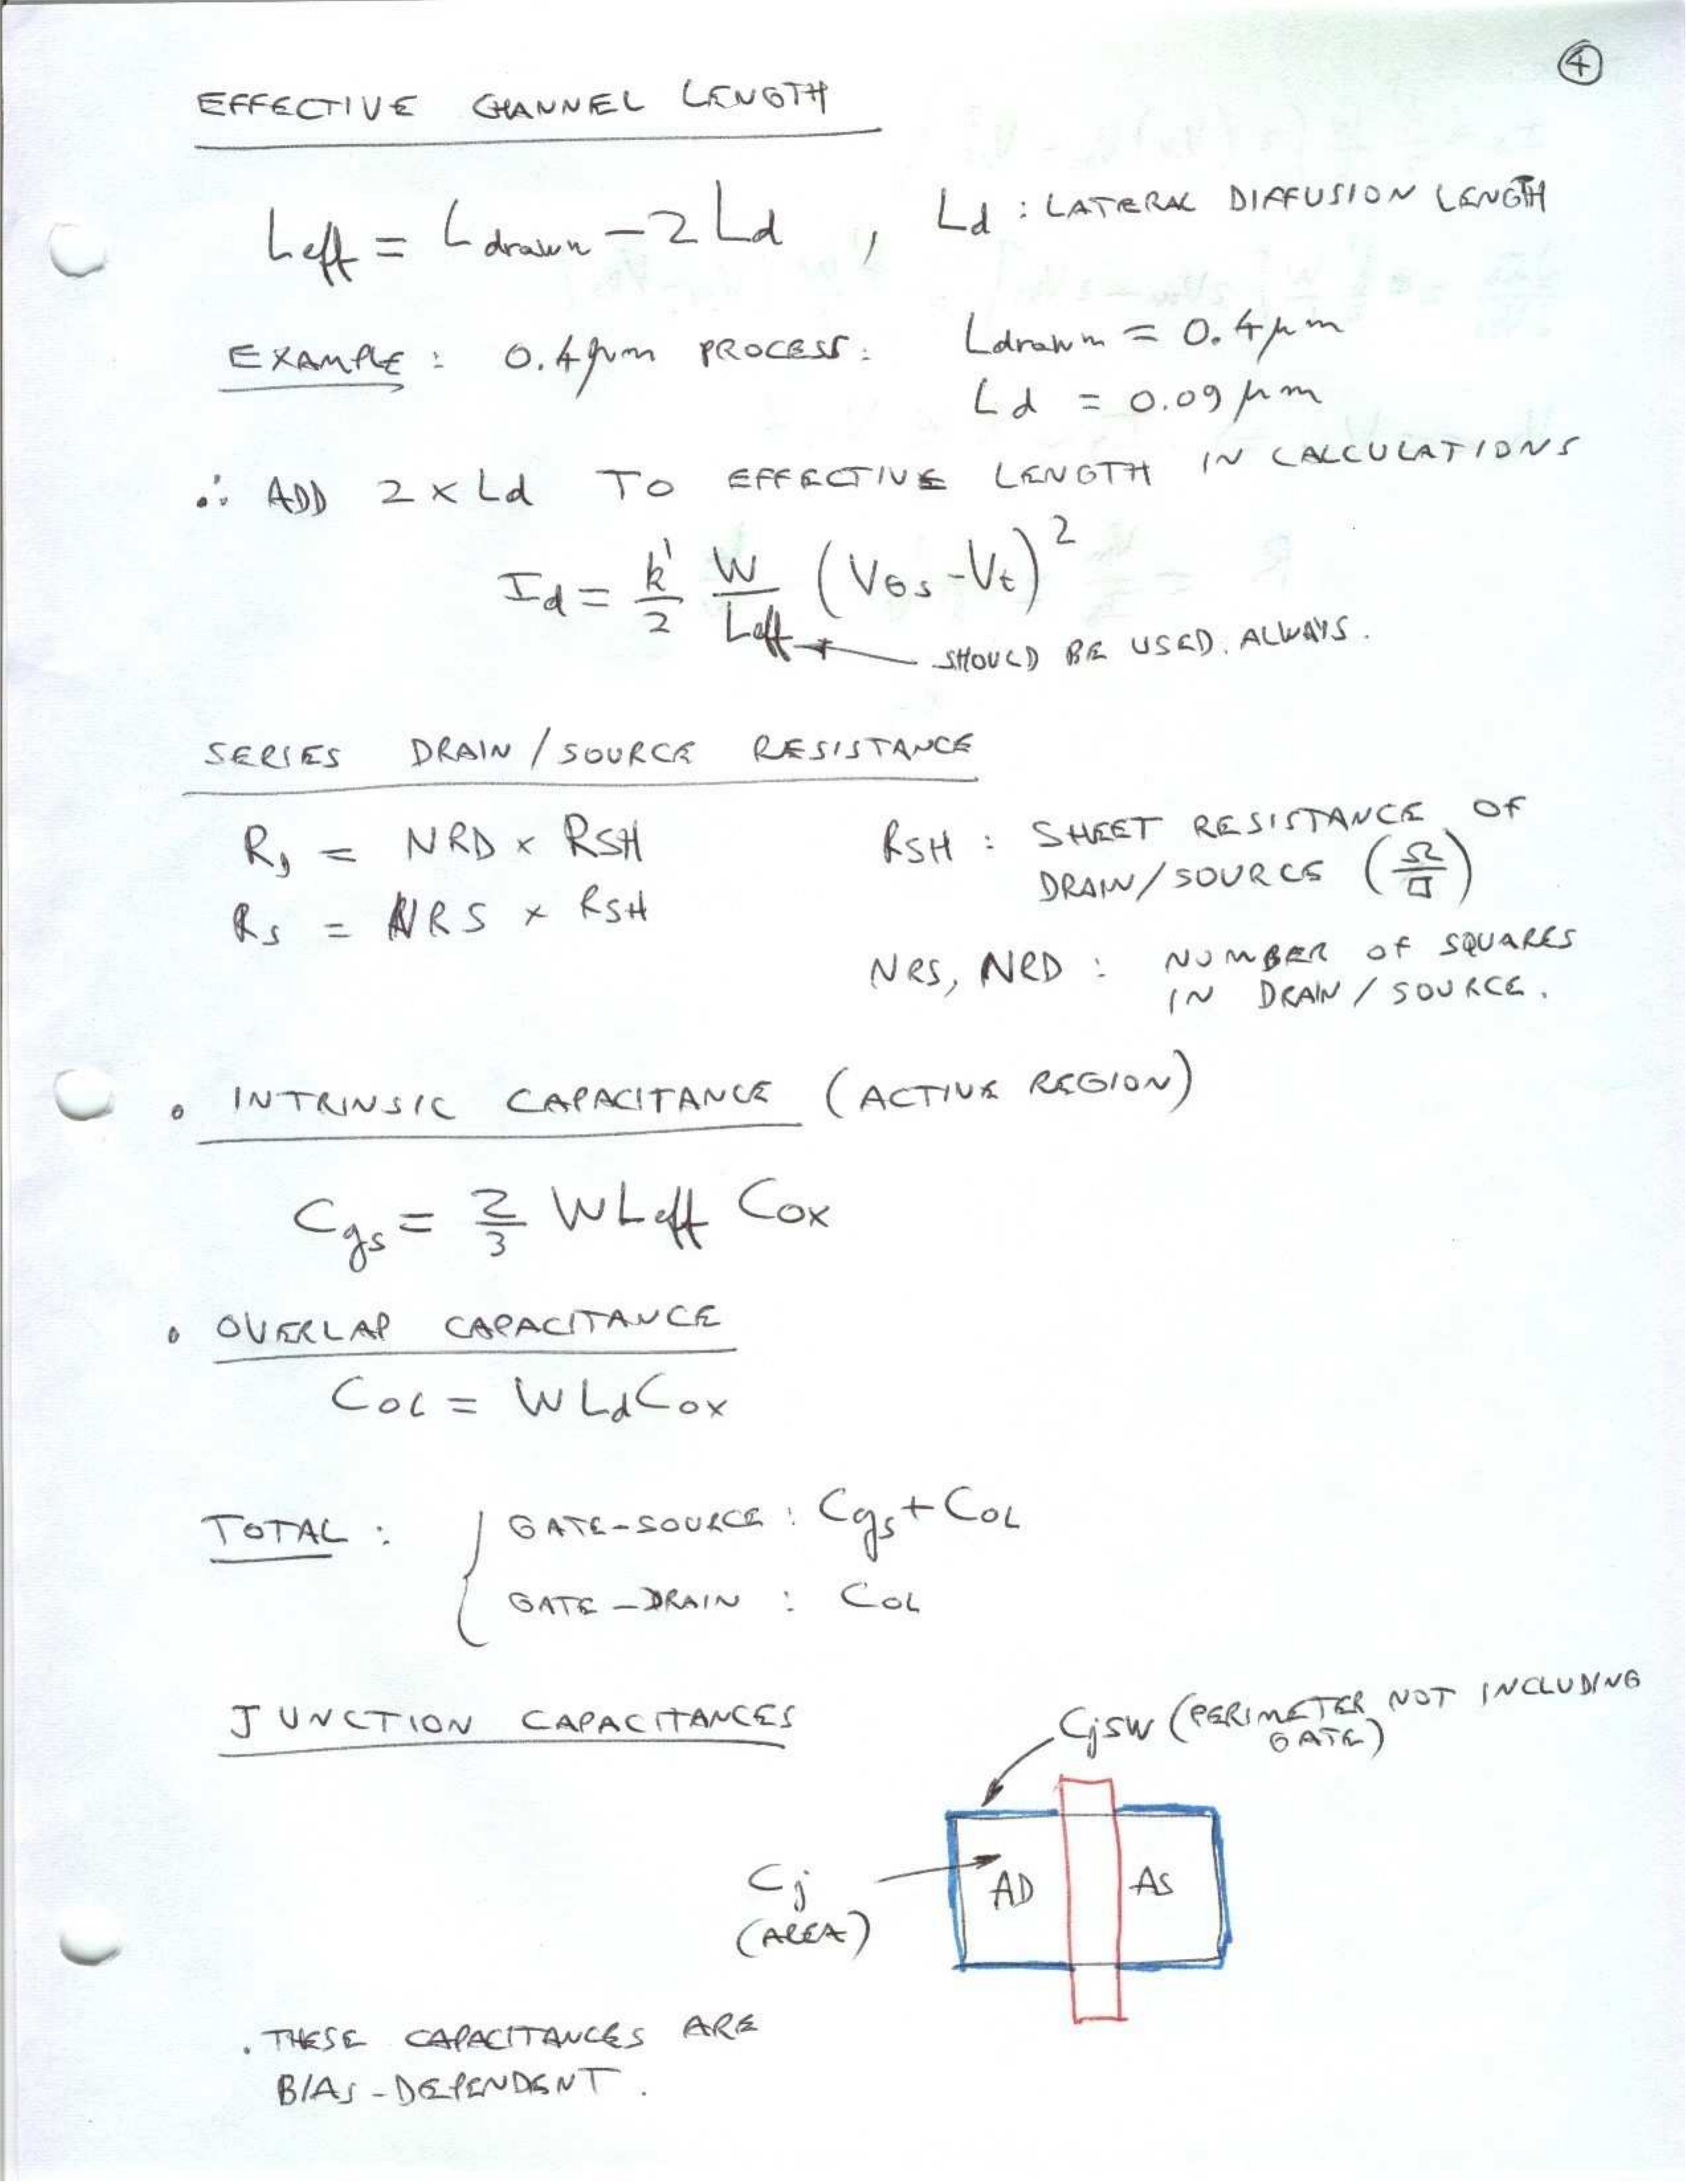 ④
EFFECTIVE CHANNEL LENGTH
Leff = Ldrawn - 2 Ld , Ld : LATERAL DIFFUSION LENGTH
EXAMPLE : 0.4μm PROCESS : Ldrawn = 0.4μm
Ld = 0.09μm
∴ ADD 2 x Ld TO EFFECTIVE LENGTH IN CALCULATIONS
Id = k'/2 W/Leff (VGS - Vt)²
SHOULD BE USED. ALWAYS.
SERIES DRAIN / SOURCE RESISTANCE
RD = NRD x RSH
RS = NRS x RSH
RSH : SHEET RESISTANCE OF
DRAIN/SOURCE (Ω/□)
NRS, NRD : NUMBER OF SQUARES
IN DRAIN / SOURCE.
• INTRINSIC CAPACITANCE (ACTIVE REGION)
Cgs = 2/3 WLeff Cox
• OVERLAP CAPACITANCE
COL = WLdCox
TOTAL : { GATE-SOURCE : Cgs + COL
GATE-DRAIN : COL
JUNCTION CAPACITANCES
CjSW (PERIMETER NOT INCLUDING
GATE)
Cj
(AREA)
AD AS
. THESE CAPACITANCES ARE
BIAS-DEPENDENT.